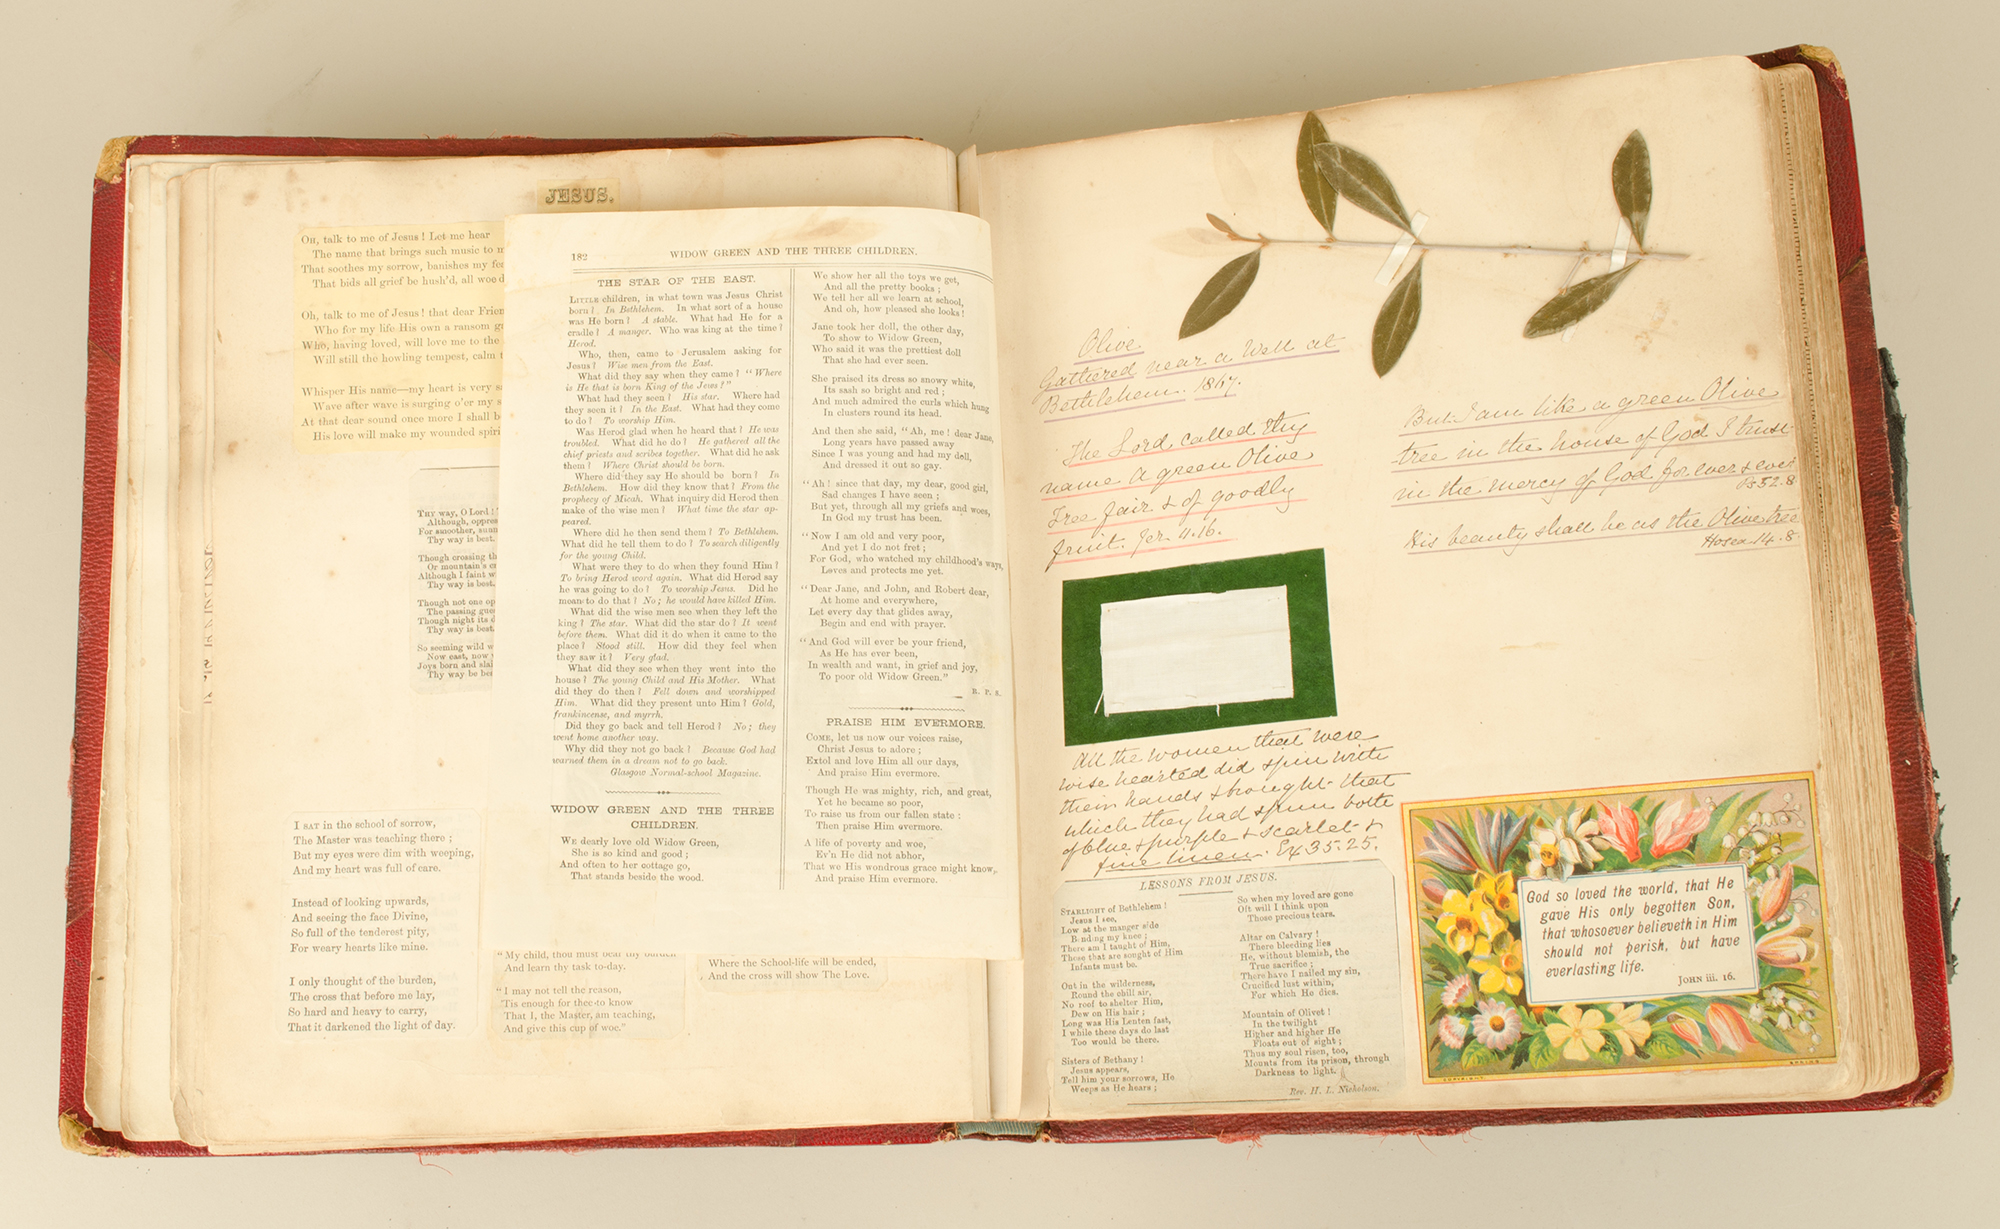 JESUS.
Oh, talk to me of Jesus! Let me hear
The name that brings such music to
That soothes my sorrow, banishes my
That bids all grief be hush'd, all woe
Oh, talk to me of Jesus! that dear Frien
Who for my life His own a ransom
Who, having loved, will love me to the
Will still the howling tempest, calm
Whisper His name—my heart is very
Wave after wave is surging o'er my
At that dear sound once more I shall
His love will make my wounded spiri
Thy way, O Lord!
Although, oppres
For smoother, sunn
Thy way is best.
Though crossing th
Or mountain's
Although I faint
Thy way is best.
Though not one op
The passing gues
Though might its
Thy way is best.
So seeming wild
Now east, now
Joys born and slai
Thy way be bes
I sat in the school of sorrow,
The Master was teaching there;
But my eyes were dim with weeping,
And my heart was full of care.
Instead of looking upwards,
And seeing the face Divine,
So full of the tenderest pity,
For weary hearts like mine.
I only thought of the burden,
The cross that before me lay,
So hard and heavy to carry,
That it darkened the light of day.
"My child, thou must bear thy burden
And learn thy task to-day.
"I may not tell the reason,
'Tis enough for thee to know
That I, the Master, am teaching,
And give this cup of woe."
Where the School-life will be ended,
And the cross will show The Love.
182 WIDOW GREEN AND THE THREE CHILDREN.
THE STAR OF THE EAST.
Little children, in what town was Jesus Christ
born? In Bethlehem. In what sort of a house
was He born? A stable. What had He for a
cradle? A manger. Who was king at the time?
Herod.
Who, then, came to Jerusalem asking for
Jesus? Wise men from the East.
What did they say when they came? "Where
is He that is born King of the Jews?"
What had they seen? His star. Where had
they seen it? In the East. What had they come
to do? To worship Him.
Was Herod glad when he heard that? He was
troubled. What did he do? He gathered all the
chief priests and scribes together. What did he ask
them? Where Christ should be born.
Where did they say He should be born? In
Bethlehem. How did they know that? From the
prophecy of Micah. What inquiry did Herod then
make of the wise men? What time the star ap-
peared.
Where did he then send them? To Bethlehem.
What did he tell them to do? To search diligently
for the young Child.
What were they to do when they found Him?
To bring Herod word again. What did Herod say
he was going to do? To worship Jesus. Did he
mean to do that? No; he would have killed Him.
What did the wise men see when they left the
king? The star. What did the star do? It went
before them. What did it do when it came to the
place? Stood still. How did they feel when
they saw it? Very glad.
What did they see when they went into the
house? The young Child and His Mother. What
did they do then? Fell down and worshipped
Him. What did they present unto Him? Gold,
frankincense, and myrrh.
Did they go back and tell Herod? No; they
went home another way.
Why did they not go back? Because God had
warned them in a dream not to go back.
Glasgow Normal-school Magazine.
WIDOW GREEN AND THE THREE
CHILDREN.
We dearly love old Widow Green,
She is so kind and good;
And often to her cottage go,
That stands beside the wood.
We show her all the toys we get,
And all the pretty books;
We tell her all we learn at school,
And oh, how pleased she looks!
Jane took her doll, the other day,
To show to Widow Green,
Who said it was the prettiest doll
That she had ever seen.
She praised its dress so snowy white,
Its sash so bright and red;
And much admired the curls which hung
In clusters round its head.
And then she said, "Ah, me! dear Jane,
Long years have passed away
Since I was young and had my doll,
And dressed it out so gay.
"Ah! since that day, my dear, good girl,
Sad changes I have seen;
But yet, through all my griefs and woes,
In God my trust has been.
"Now I am old and very poor,
And yet I do not fret;
For God, who watched my childhood's ways,
Loves and protects me yet.
"Dear Jane, and John, and Robert dear,
At home and everywhere,
Let every day that glides away,
Begin and end with prayer.
"And God will ever be your friend,
As He has ever been,
In wealth and want, in grief and joy,
To poor old Widow Green."
R. P. S.
PRAISE HIM EVERMORE.
Come, let us now our voices raise,
Christ Jesus to adore;
Extol and love Him all our days,
And praise Him evermore.
Though He was mighty, rich, and great,
Yet he became so poor,
To raise us from our fallen state:
Then praise Him evermore.
A life of poverty and woe,
Ev'n He did not abhor,
That we His wondrous grace might know,
And praise Him evermore.
Olive
Gathered near a Well at
Bethlehem. 1867.
The Lord called thy
name a green Olive
Tree fair & of goodly
fruit. Jer 11.16.
But I am like a green Olive
tree in the house of God I trust
in the mercy of God for ever & ever
Ps 52.8
His beauty shall be as the Olive tree
Hosea 14.8
All the women that were
wise hearted did spin with
their hands & brought that
which they had spun both
of blue & purple & scarlet &
fine linen. Ex 35.25.
LESSONS FROM JESUS.
Starlight of Bethlehem!
Jesus I see,
Low at the manger side
Bending my knee;
There am I taught of Him,
Those that are sought of Him
Infants must be.
Out in the wilderness,
Round the chill air,
No roof to shelter Him,
Dew on His hair;
Long was His Lenten fast,
I while these days do last
Too would be there.
Sisters of Bethany!
Jesus appears,
Tell him your sorrows, He
Weeps as He hears;
So when my loved are gone
Oft will I think upon
Those precious tears.
Altar on Calvary!
There bleeding lies
He, without blemish, the
True sacrifice;
There have I nailed my sin,
Crucified lust within,
For which He dies.
Mountain of Olivet!
In the twilight
Higher and higher He
Floats out of sight;
Thus my soul risen, too,
Mounts from its prison, through
Darkness to light.
Rev. H. L. Nicholson.
God so loved the world, that He
gave His only begotten Son,
that whosoever believeth in Him
should not perish, but have
everlasting life.
John iii. 16.
COPYRIGHT.
SPRING